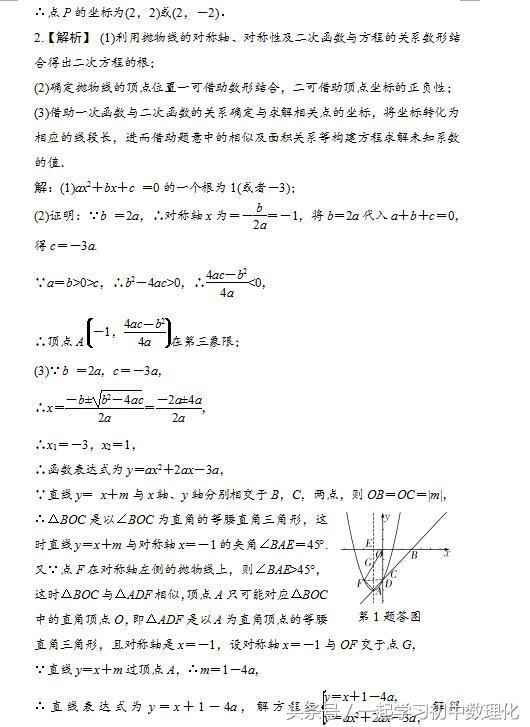 ∴点P的坐标为(2，2)或(2，－2).
2.【解析】 (1)利用抛物线的对称轴、对称性及二次函数与方程的关系数形结
合得出二次方程的根；
(2)确定抛物线的顶点位置一可借助数形结合，二可借助顶点坐标的正负性；
(3)借助一次函数与二次函数的关系确定与求解相关点的坐标，将坐标转化为
相应的线段长，进而借助题意中的相似及面积关系等构建方程求解未知系数
的值.
解：(1)ax²＋bx＋c ＝0的一个根为1(或者－3)；
(2)证明：∵b ＝2a，∴对称轴x为＝－b/2a＝－1，将b＝2a代入a＋b＋c＝0，
得c＝－3a.
∵a＝b>0>c，∴b²－4ac>0，∴(4ac－b²)/4a<0，
∴顶点A(－1，(4ac－b²)/4a)在第三象限；
(3)∵b ＝2a，c＝－3a，
∴x＝(－b±√(b²－4ac))/2a＝(－2a±4a)/2a，
∴x₁＝－3，x₂＝1，
∴函数表达式为y＝ax²＋2ax－3a，
∵直线y＝ x＋m与x轴、y轴分别相交于B，C，两点，则OB＝OC＝|m|，
∴△BOC是以∠BOC为直角的等腰直角三角形，这
时直线y＝x＋m与对称轴x＝－1的夹角∠BAE＝45°.
又∵点F在对称轴左侧的抛物线上，则∠BAE>45°，
这时△BOC与△ADF相似，顶点A只可能对应△BOC
中的直角顶点O，即△ADF是以A为直角顶点的等腰
直角三角形，且对称轴是x＝－1，设对称轴x＝－1与OF交于点G，
y
E
O
B
x
G
F
C
D
A
第1题答图
∵直线y＝x＋m过顶点A，∴m＝1－4a，
∴直线表达式为y＝x＋1－4a，解方程组{y＝x＋1－4a，
y＝ax²＋2ax－3a，
解得
头条号/一起学习初中数理化